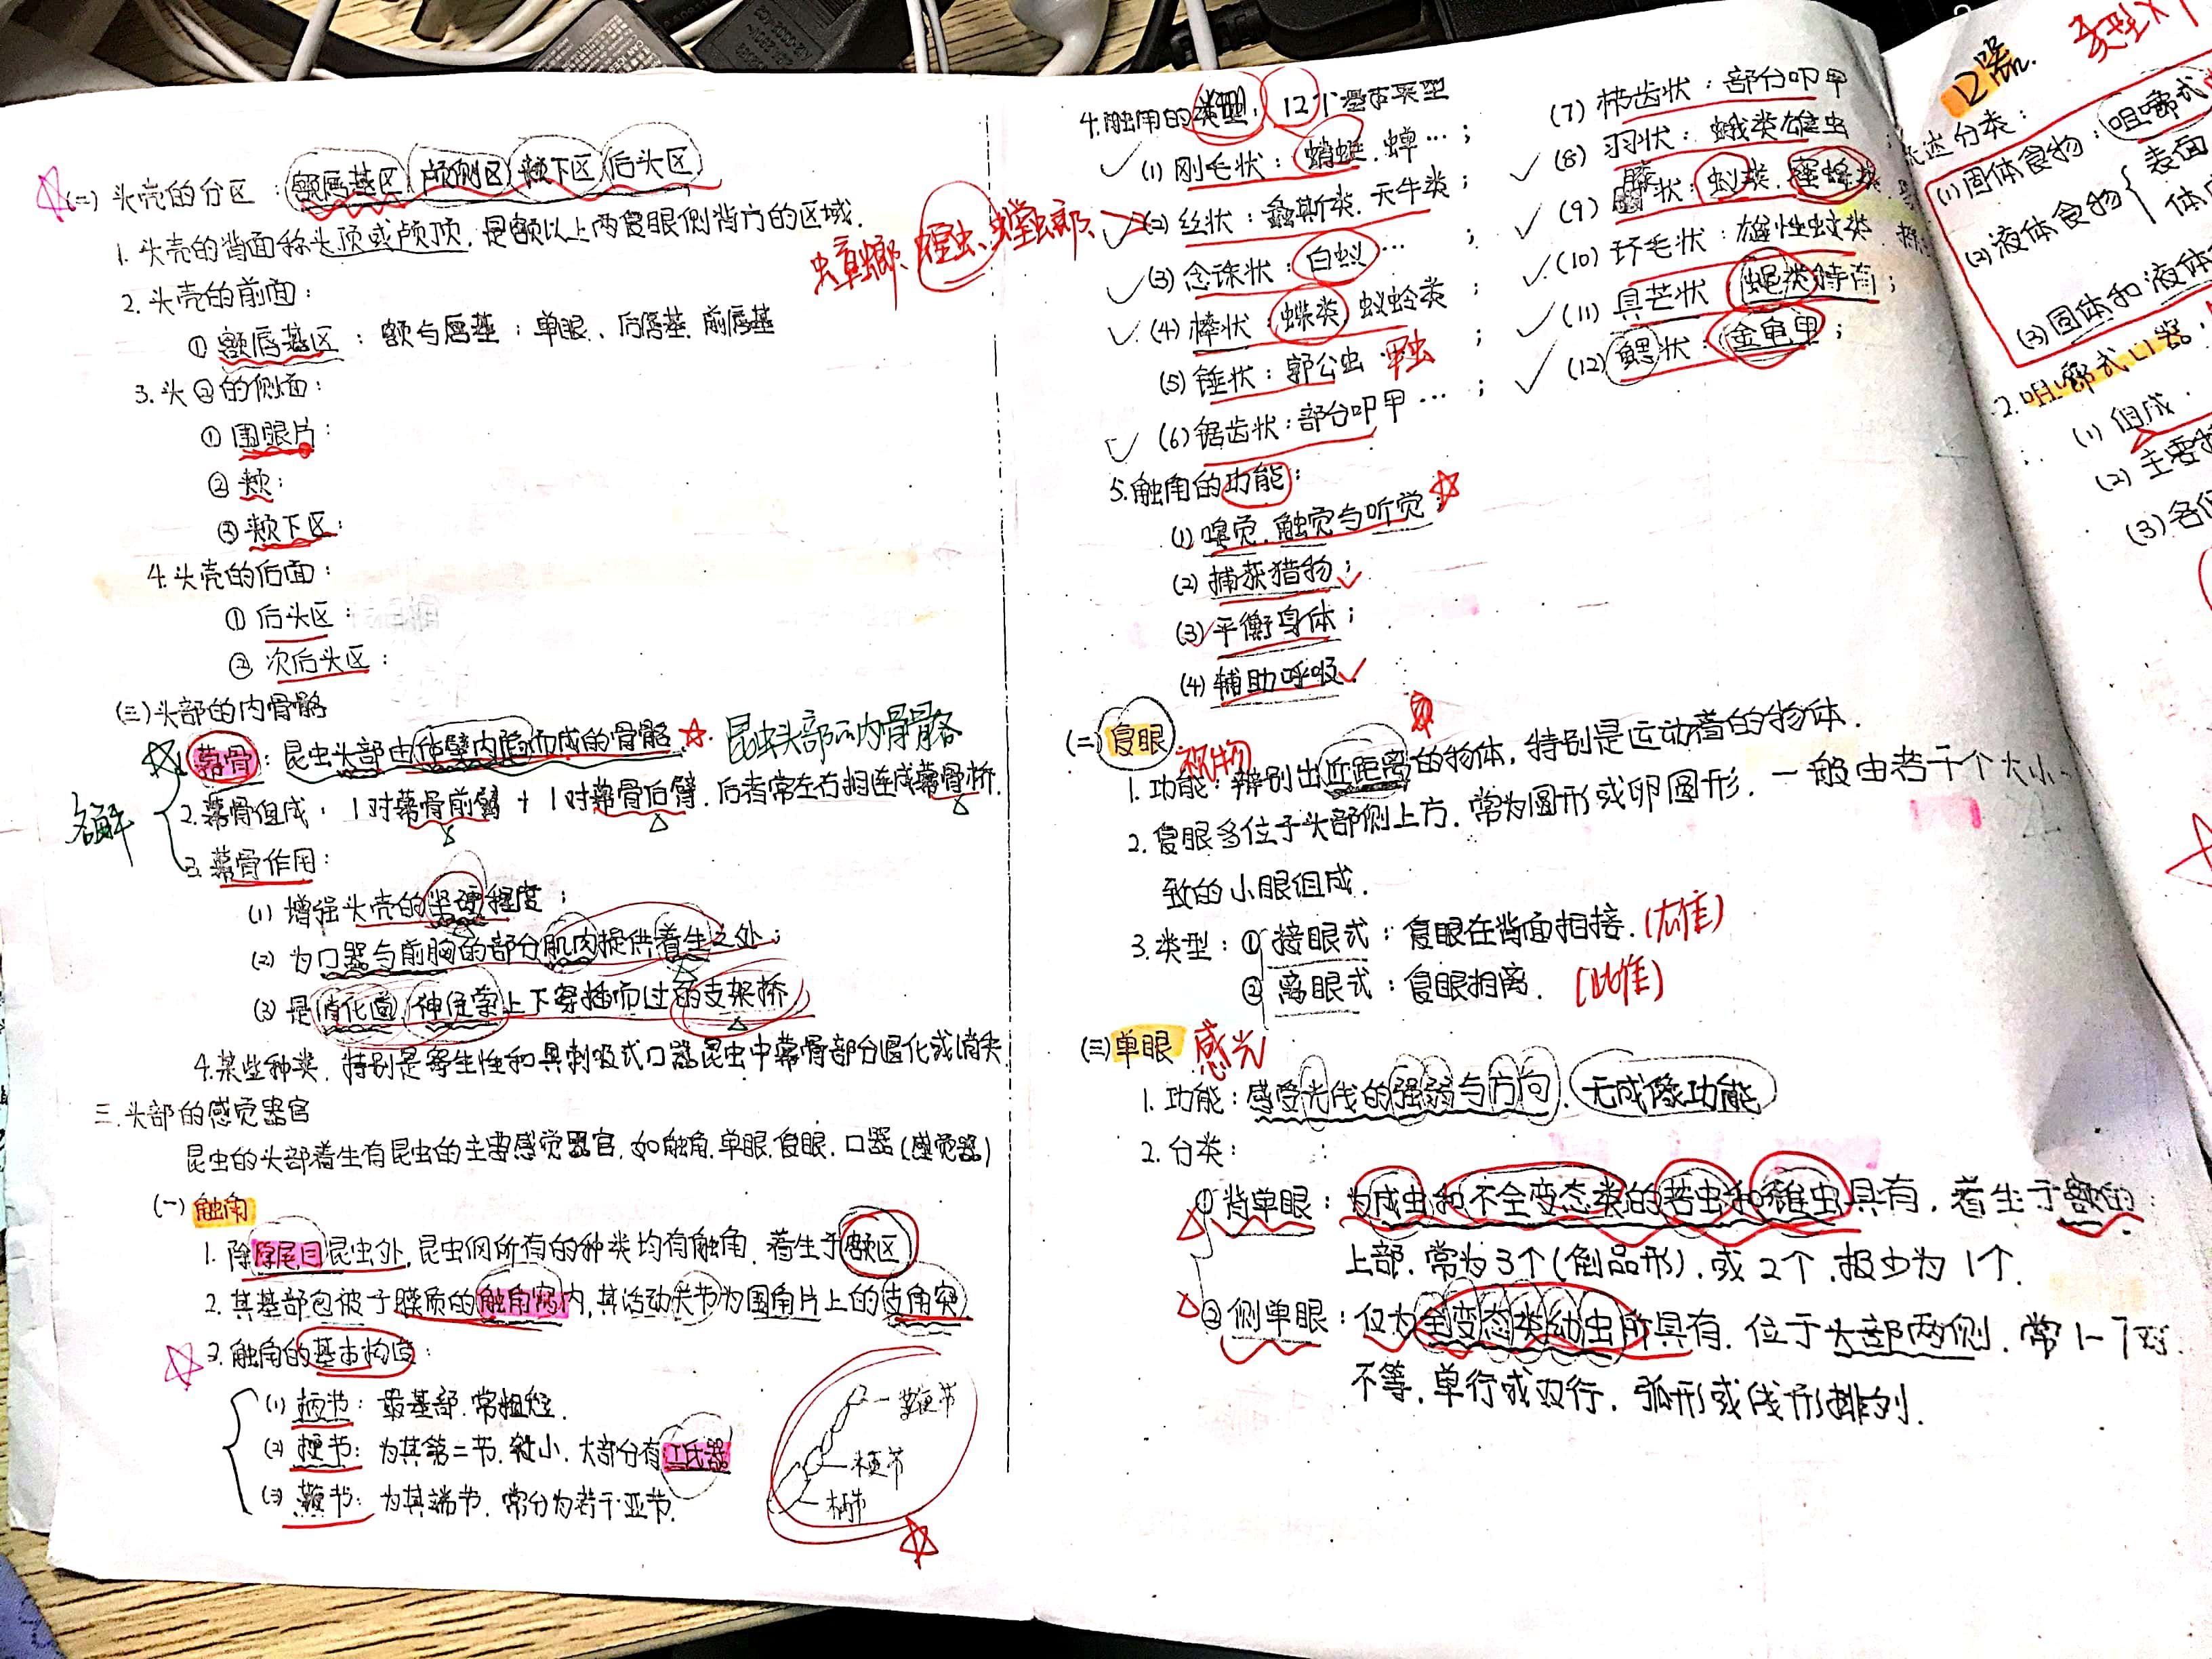 (二) 头壳的分区：额唇基区、颅侧区、颊下区、后头区
1. 头壳的背面称头顶或颅顶，是额以上两复眼侧背方的区域.
2. 头壳的前面：
① 额唇基区：额与唇基；单眼、后唇基、前唇基
3. 头的侧面：
① 围眼片：
② 颊：
③ 颊下区：
4. 头壳的后面：
① 后头区：
② 次后头区：
(三) 头部的内骨骼
幕骨：昆虫头部由体壁内陷而成的骨骼. 昆虫头部的内骨骼
名解
2. 幕骨组成：1对幕骨前臂 + 1对幕骨后臂. 后者常左右相连成幕骨桥.
3. 幕骨作用：
(1) 增强头壳的坚硬程度；
(2) 为口器与前胸的部分肌肉提供着生之处；
(3) 是消化道、神经索上下穿插而过的支架桥.
4. 某些种类，特别是寄生性和具刺吸式口器昆虫中幕骨部分退化或消失
三. 头部的感觉器官
昆虫的头部着生有昆虫的主要感觉器官，如触角、单眼、复眼、口器(感觉器)
(一) 触角
1. 除原尾目昆虫外，昆虫纲所有的种类均有触角，着生于额区
2. 其基部包被于膜质的触角窝内，其活动关节为围角片上的支角突
3. 触角的基本构造：
(1) 柄节：最基部，常粗短.
(2) 梗节：为其第二节，较小，大部分有江氏器
(3) 鞭节：为其端节，常分为若干亚节.
鞭节
梗节
柄节
4. 触角的类型：12个基本类型
(1) 刚毛状：蜻蜓、蝉…；
蟑螂、蝗虫、螳螂
(2) 丝状：螽斯类、天牛类；
(3) 念珠状：白蚁…；
(4) 棒状：蝶类、蚁蛉类；
(5) 锤状：郭公虫；
(6) 锯齿状：部分叩甲…；
(7) 栉齿状：部分叩甲
(8) 羽状：蛾类雄虫
(9) 膝状：蚁类、蜜蜂类
(10) 环毛状：雄性蚊类
(11) 具芒状 蝇类特有；
(12) 鳃状：金龟甲；
5. 触角的功能：
(1) 嗅觉、触觉与听觉；
(2) 捕获猎物；
(3) 平衡身体；
(4) 辅助呼吸.
(二) 复眼 视物
1. 功能：辨别出近距离的物体，特别是运动着的物体.
2. 复眼多位于头部侧上方，常为圆形或卵圆形，一般由若干个大小一
致的小眼组成.
3. 类型：① 接眼式：复眼在背面相接.(尢隹)
② 离眼式：复眼相离. (此隹)
(三) 单眼 感光
1. 功能：感受光线的强弱与方向，无成像功能
2. 分类：
① 背单眼：为成虫和不全变态类的若虫和稚虫具有，着生于额的
上部，常为3个(倒品形)，或2个，极少为1个.
② 侧单眼：仅为全变态类幼虫所具有，位于头部两侧，常1-7对
不等，单行或双行，弧形或线形排列.
口器. 类型
分类：
(1) 固体食物：咀嚼式
(2) 液体食物 { 表面
(3) 固体和液体
2. 咀嚼式口器
(1) 组成.
(2) 主要
(3) 各